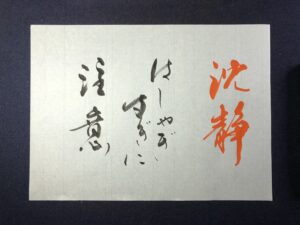 沈静
はしゃぎ
すぎに
注意